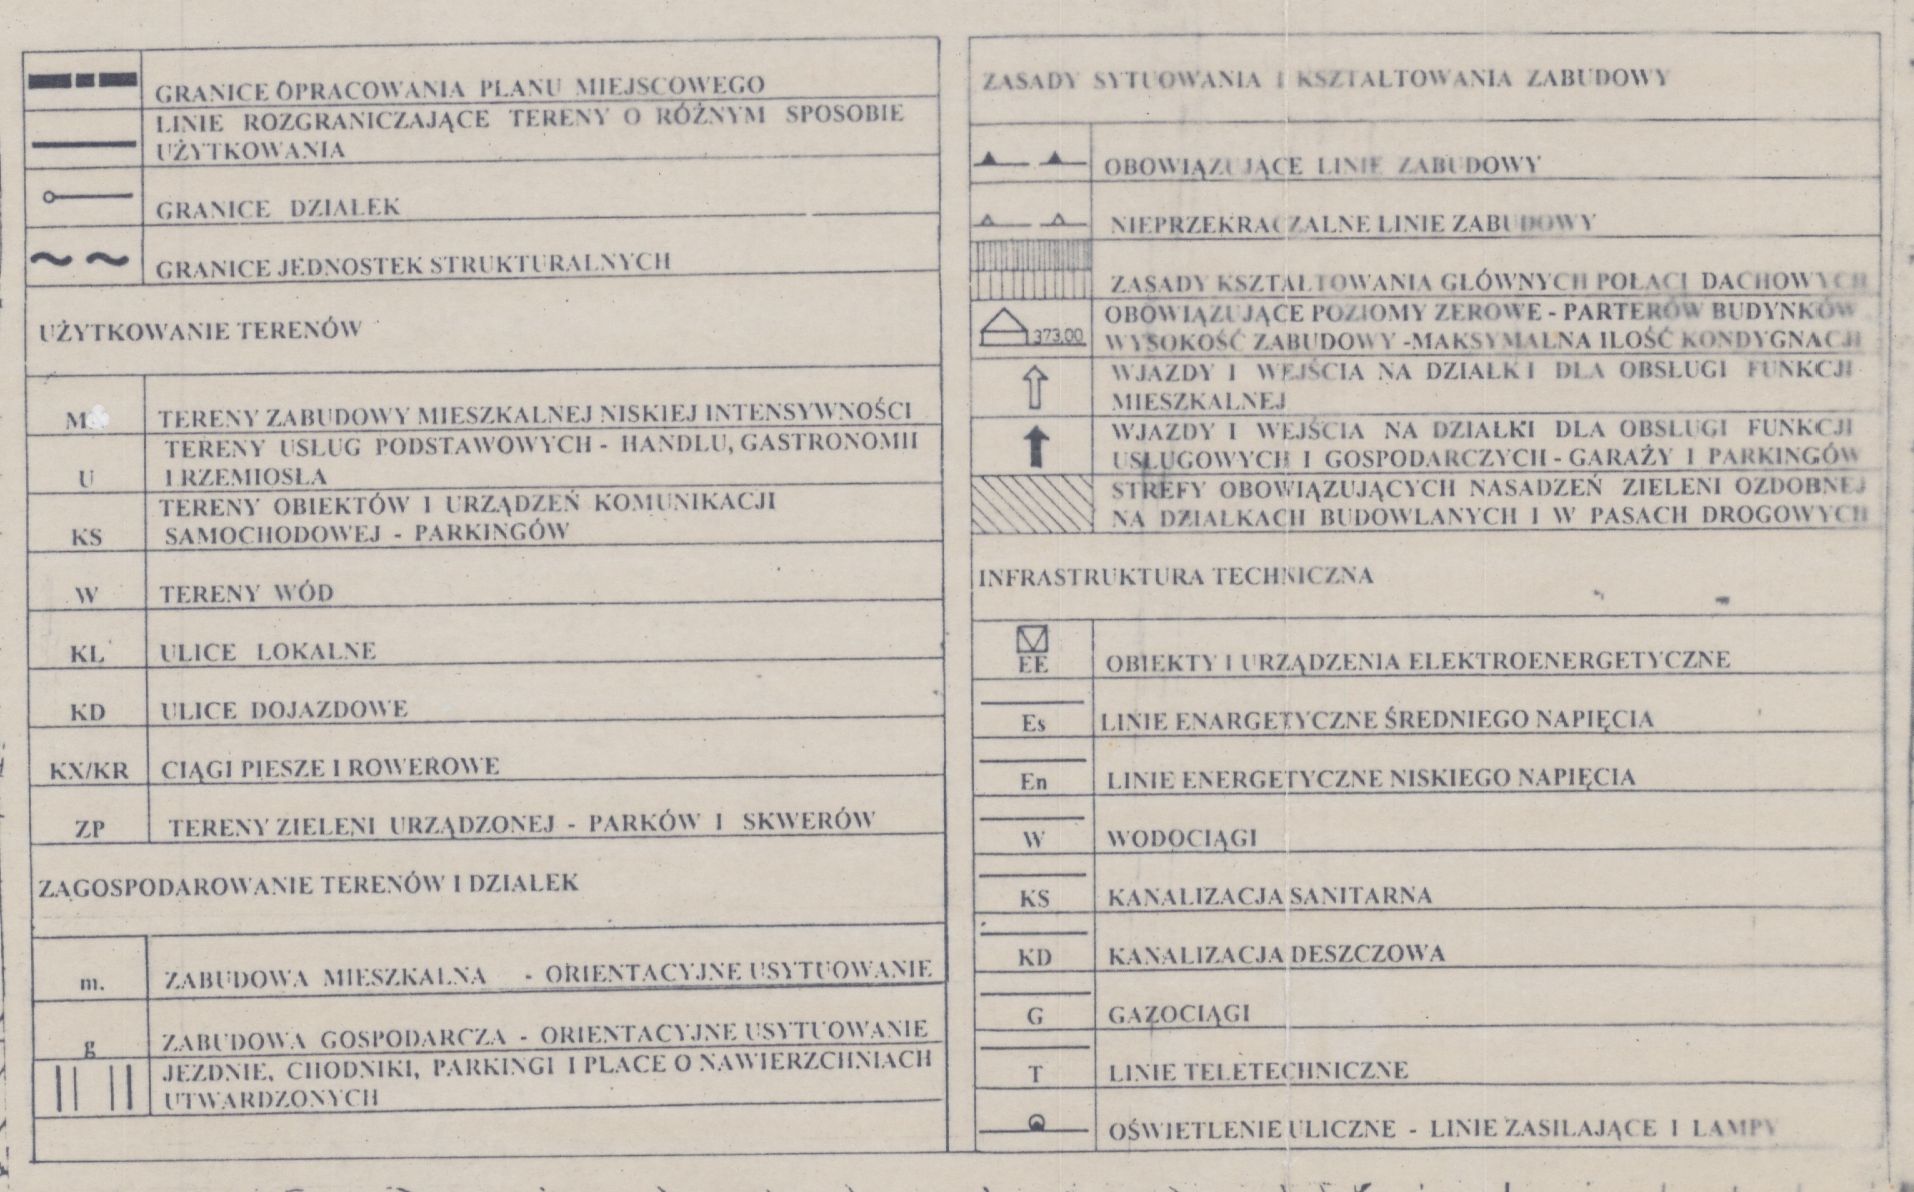 GRANICE OPRACOWANIA PLANU MIEJSCOWEGO
LINIE ROZGRANICZAJĄCE TERENY O RÓŻNYM SPOSOBIE
UŻYTKOWANIA
GRANICE DZIAŁEK
GRANICE JEDNOSTEK STRUKTURALNYCH
UŻYTKOWANIE TERENÓW
M TERENY ZABUDOWY MIESZKALNEJ NISKIEJ INTENSYWNOŚCI
TERENY USŁUG PODSTAWOWYCH - HANDLU, GASTRONOMII
U I RZEMIOSŁA
TERENY OBIEKTÓW I URZĄDZEŃ KOMUNIKACJI
KS SAMOCHODOWEJ - PARKINGÓW
W TERENY WÓD
KL ULICE LOKALNE
KD ULICE DOJAZDOWE
KX/KR CIĄGI PIESZE I ROWEROWE
ZP TERENY ZIELENI URZĄDZONEJ - PARKÓW I SKWERÓW
ZAGOSPODAROWANIE TERENÓW I DZIAŁEK
m. ZABUDOWA MIESZKALNA - ORIENTACYJNE USYTUOWANIE
g ZABUDOWA GOSPODARCZA - ORIENTACYJNE USYTUOWANIE
JEZDNIE, CHODNIKI, PARKINGI I PLACE O NAWIERZCHNIACH
UTWARDZONYCH
ZASADY SYTUOWANIA I KSZTAŁTOWANIA ZABUDOWY
OBOWIĄZUJĄCE LINIE ZABUDOWY
NIEPRZEKRACZALNE LINIE ZABUDOWY
ZASADY KSZTAŁTOWANIA GŁÓWNYCH POŁACI DACHOWYCH
OBOWIĄZUJĄCE POZIOMY ZEROWE - PARTERÓW BUDYNKÓW
373,00 WYSOKOŚĆ ZABUDOWY -MAKSYMALNA ILOŚĆ KONDYGNACJI
WJAZDY I WEJŚCIA NA DZIAŁKI DLA OBSŁUGI FUNKCJI
MIESZKALNEJ
WJAZDY I WEJŚCIA NA DZIAŁKI DLA OBSŁUGI FUNKCJI
USŁUGOWYCH I GOSPODARCZYCH - GARAŻY I PARKINGÓW
STREFY OBOWIĄZUJĄCYCH NASADZEŃ ZIELENI OZDOBNEJ
NA DZIAŁKACH BUDOWLANYCH I W PASACH DROGOWYCH
INFRASTRUKTURA TECHNICZNA
EE OBIEKTY I URZĄDZENIA ELEKTROENERGETYCZNE
Es LINIE ENARGETYCZNE ŚREDNIEGO NAPIĘCIA
En LINIE ENERGETYCZNE NISKIEGO NAPIĘCIA
W WODOCIĄGI
KS KANALIZACJA SANITARNA
KD KANALIZACJA DESZCZOWA
G GAZOCIĄGI
T LINIE TELETECHNICZNE
OŚWIETLENIE ULICZNE - LINIE ZASILAJĄCE I LAMPY